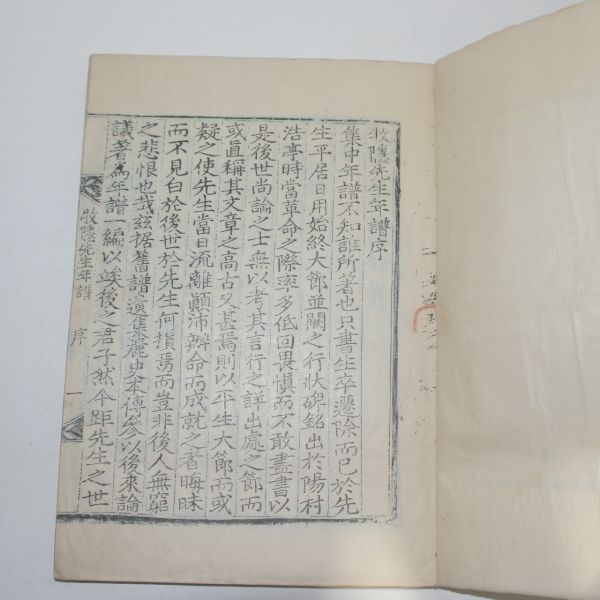 牧隱先生年譜序
集中年譜不知誰所著也只書生卒遷除而已於先
生平居日用始終大節並闕之行狀碑銘出於陽村
浩亭時當革命之際率多低回畏愼而不敢盡書以
是後世尚論之士無以考其言行之詳出處之節而
或直稱其文章之高古又甚焉則以平生大節而或
疑之使先生當日流離顚沛辦命而成就之者晦昧
而不見白於後世於先生何損焉而豈非後人無窮
之悲恨也哉玆据舊譜遺集麗史本傳參以後來論
議著爲年譜一編以俟後之君子然今距先生之世
牧隱先生年譜 序 一